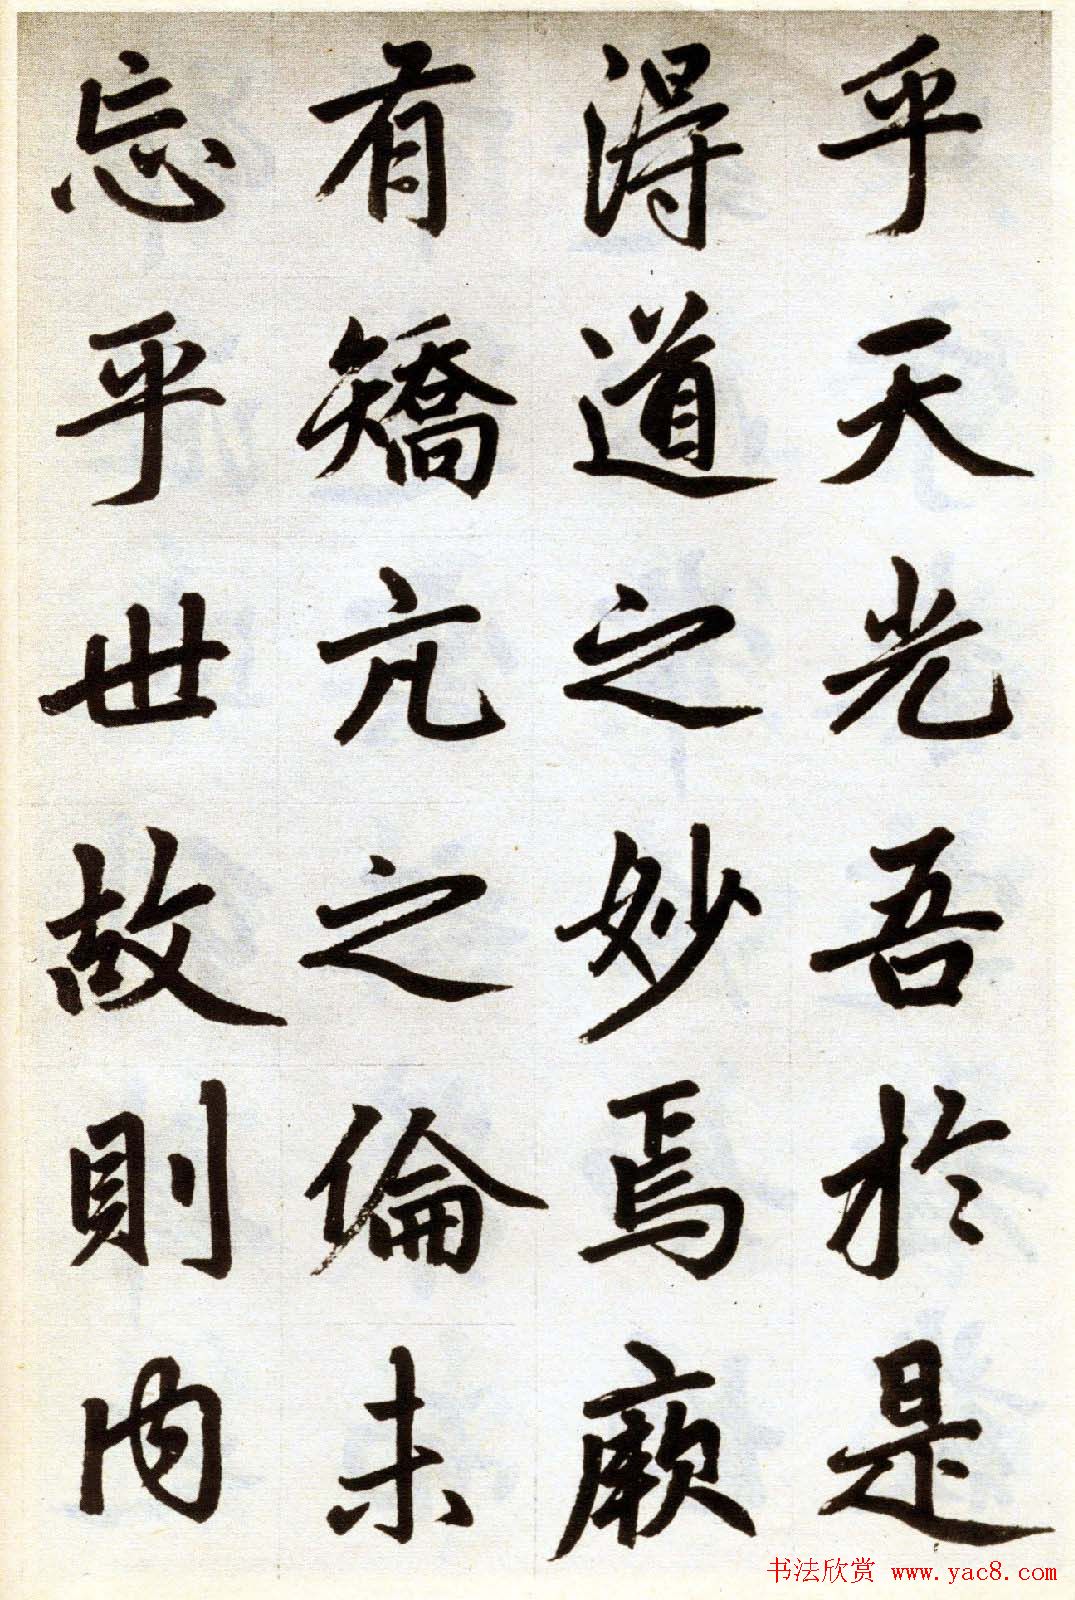 乎天光吾於是
得道之妙焉厥
有矯亢之倫未
忘乎世故則内
书法欣赏 www.yac8.com